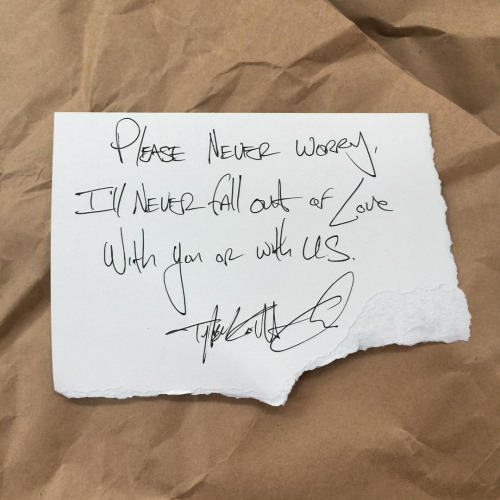 Please Never worry.
I'll Never fall out of Love
With you or with US.